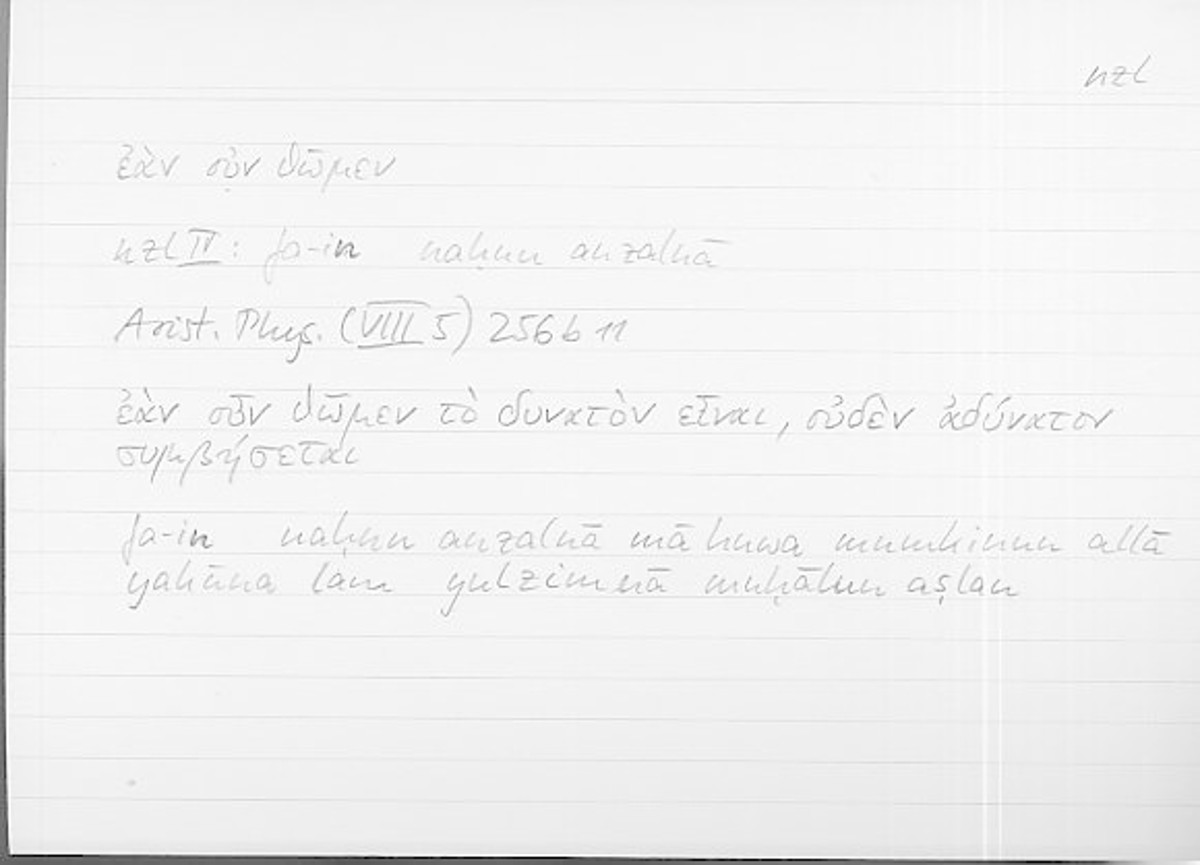 nzl
ἐὰν οὖν θῶμεν
nzl IV: fa-in naḥnu anzalnā
Arist. Phys. (VIII 5) 256 b 11
ἐὰν οὖν θῶμεν τὸ δυνατὸν εἶναι, οὐδὲν ἀδύνατον
συμβήσεται
fa-in naḥnu anzalnā mā huwa mumkinun allā
yakūna lam yulzimnā muḥālun aṣlan